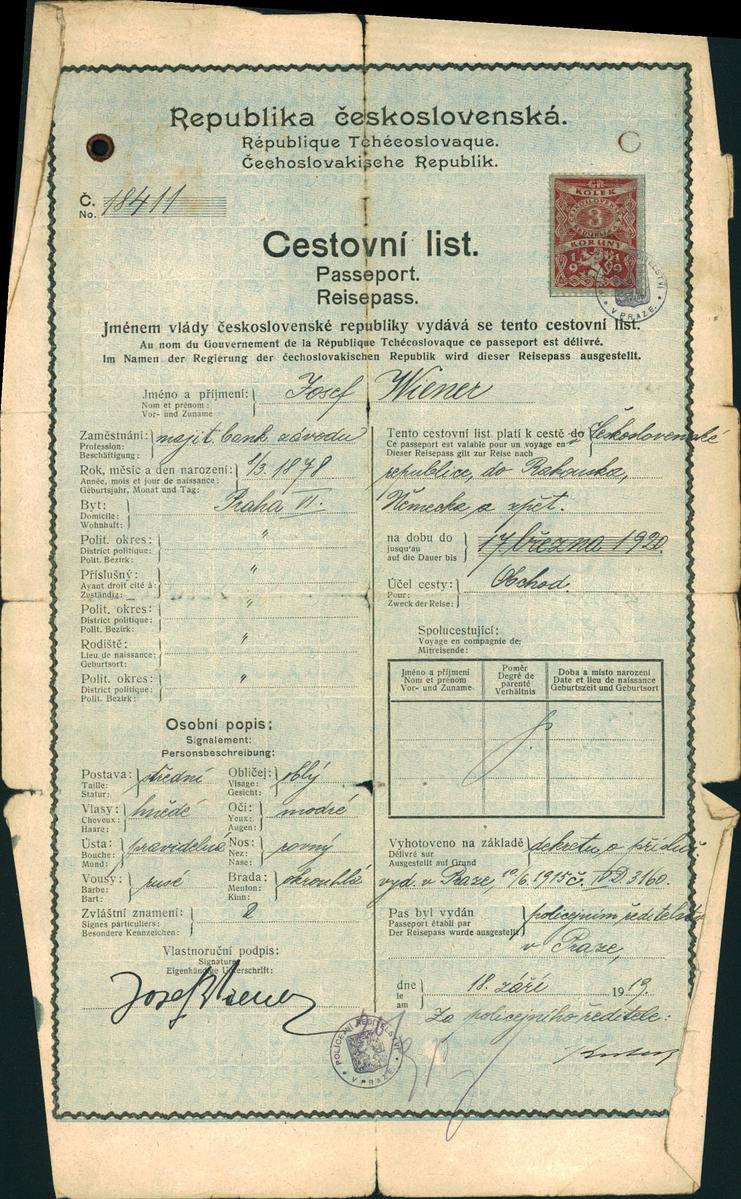 Republika československá.
République Tchécoslovaque.
Čechoslovakische Republik.
Č. 18411
No.
KOLEK
3
KORUNY
1919
V PRAZE
Cestovní list.
Passeport.
Reisepass.
Jménem vlády československé republiky vydává se tento cestovní list.
Au nom du Gouvernement de la République Tchécoslovaque ce passeport est délivré.
Im Namen der Regierung der čechoslovakischen Republik wird dieser Reisepass ausgestellt.
Jméno a příjmení: Josef Wiener
Nom et prénom:
Vor- und Zuname
Zaměstnání: majit. bank. závodu
Profession:
Beschäftigung:
Rok, měsíc a den narození: 1/3. 1878
Année, mois et jour de naissance:
Geburtsjahr, Monat und Tag:
Byt: Praha VII.
Domicile:
Wohnhaft:
Polit. okres: "
District politique:
Polit. Bezirk:
Příslušný: "
Ayant droit cité à:
Zuständig:
Polit. okres: "
District politique:
Polit. Bezirk:
Rodiště: "
Lieu de naissance:
Geburtsort:
Polit. okres: "
District politique:
Polit. Bezirk:
Osobní popis:
Signalement:
Personsbeschreibung:
Postava: střední Obličej: oblý
Taille: Visage:
Statur: Gesicht:
Vlasy: hnědé Oči: modré
Cheveux: Yeux:
Haare: Augen:
Ústa: pravidelná Nos: rovný
Bouche: Nez:
Mund: Nase:
Vousy: rusé Brada: okrouhlá
Barbe: Menton:
Bart: Kinn:
Zvláštní znamení:
Signes particuliers:
Besondere Kennzeichen:
Vlastnoruční podpis:
Signature
Eigenhändige Unterschrift:
Josef Wiener
POLICEJNÍ ŘEDITELSTVÍ
V PRAZE
Tento cestovní list platí k cestě do Československé
Ce passeport est valable pour un voyage en
Dieser Reisepass gilt zur Reise nach
republice, do Rakouska,
Německa a zpět.
na dobu do 17 března 1920
jusqu'au
auf die Dauer bis
Účel cesty: Obchod.
Pour:
Zweck der Reise:
Spolucestující:
Voyage en compagnie de:
Mitreisende:
Jméno a příjmení Poměr Doba a místo narození
Nom et prénom Degré de parenté Date et lieu de naissance
Vor- und Zuname Verhältnis Geburtszeit und Geburtsort
Vyhotoveno na základě dekretu o přísluš.
Délivré sur
Ausgestellt auf Grund
vyd. v Praze, 10/6. 1915 č. D. 3160.
Pas byl vydán policejním ředitelstv
Passeport établi par
Der Reisepass wurde ausgestellt
v Praze,
dne 18. září 1919.
le
am
Za policejního ředitele: